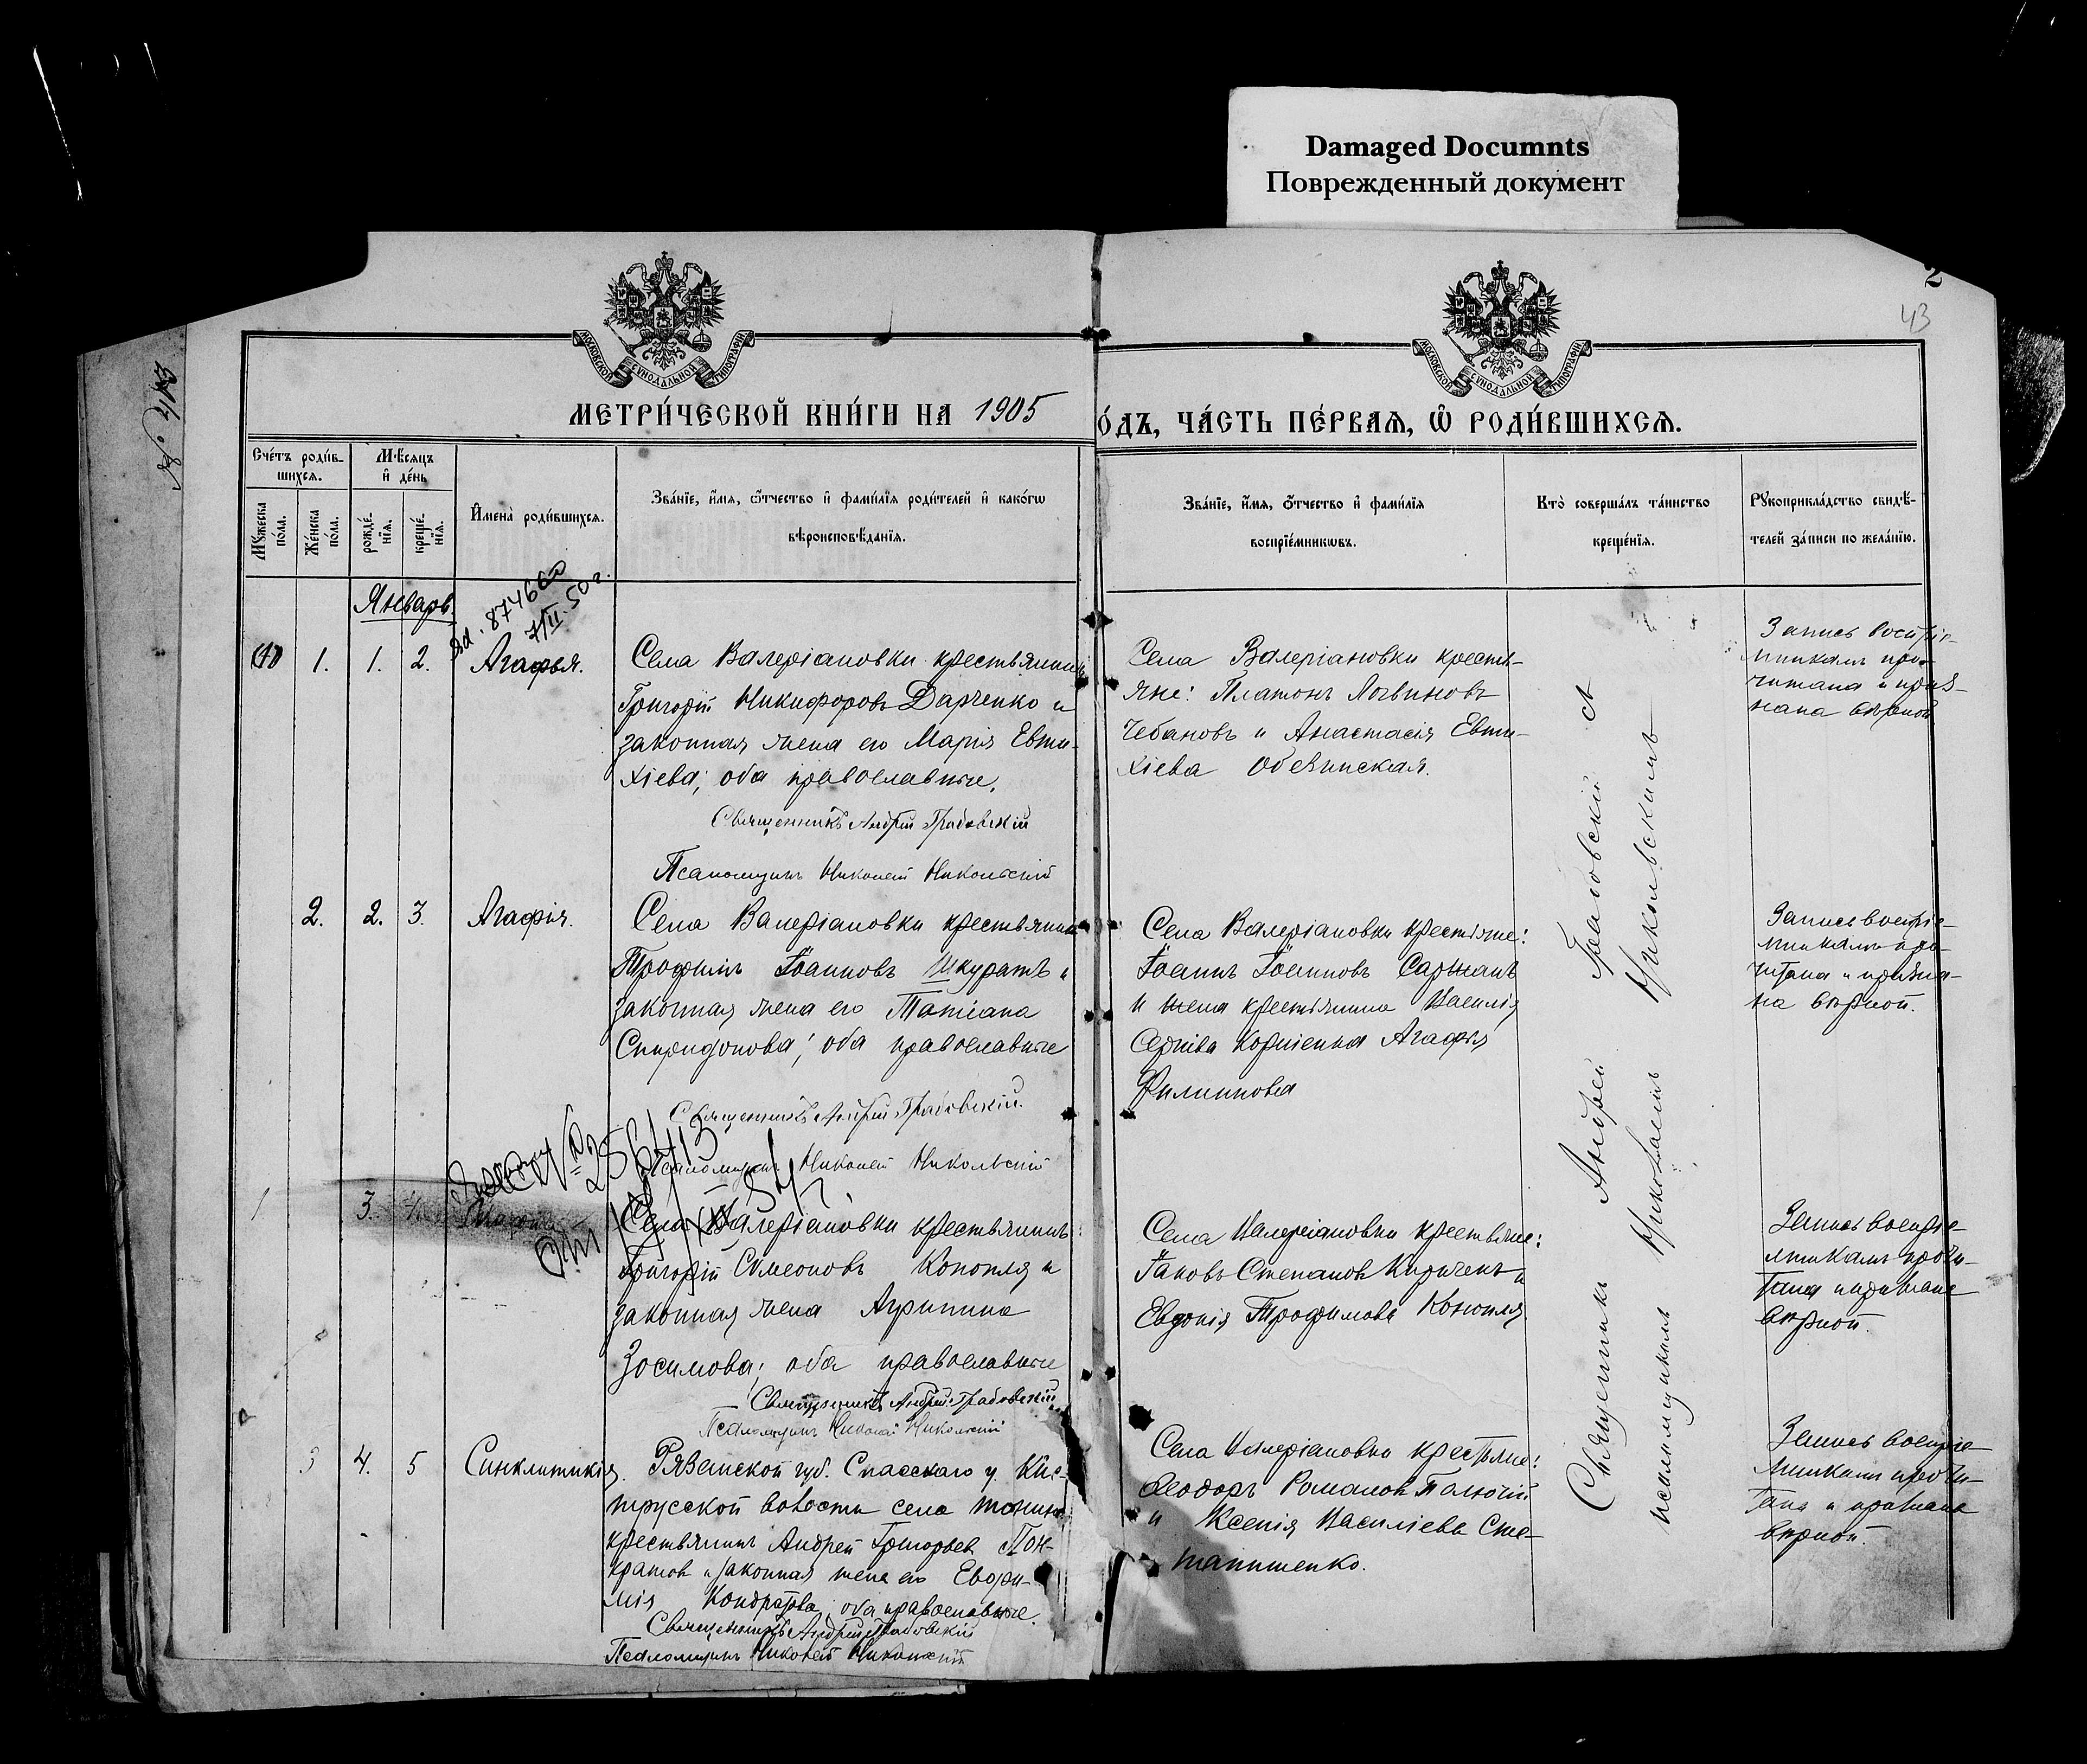 Damaged Documnts
Поврежденный документ
2
43
МОСКОВСКОЙ СѴНОДАЛЬНОЙ ТИПОГРАФІИ
МОСКОВСКОЙ СѴНОДАЛЬНОЙ ТИПОГРАФІИ
МЕТРИ́ЧЕСКОЙ КНИ́ГИ НА 1905
О́ДЪ, ЧА́СТЬ ПЕ́РВАѦ, Ѡ҆ РОДИ́ВШИХСѦ.
Сче́тъ роди́в-
шихсѧ.
Мѣ́сѧцъ
и҆ де́нь
Мꙋ́жеска
по́ла.
Же́нска
по́ла.
рожде́-
нїѧ.
креще́-
нїѧ.
И҆мена̀ роди́вшихсѧ.
Зва́нїе, и҆́мѧ, ѻ҆́тчество и҆ фами́лїѧ роди́телей и҆ како́гѡ
вѣроисповѣ́данїѧ.
Зва́нїе, и҆́мѧ, ѻ҆́тчество и҆ фами́лїѧ
воспрїе́мникѡвъ.
Кто̀ соверша́лъ та́инство
креще́нїѧ.
Рꙋкоприкла́дство свидѣ́-
телей за́писи по жела́нїю.
Январь.
7/II.50г.
1. 1. 2. Агафья.
Села Валеріановки крестьянинъ
Григорій Никифоровъ Дарченко и
законная жена его Марія Евти-
хіева; оба православные.
Священникъ Андрей Грабовскій
Псаломщикъ Николай Никольскій
Села Валеріановки кресть-
яне: Платонъ Логвиновъ
Чебановъ и Анастасія Евти-
хіева
Запись воспріе-
мникамъ про-
читана и приз-
нана вѣрной
2. 2. 3. Агафія.
Села Валеріановки крестьянинъ
Трофимъ Іоанновъ Шкуратъ и
законная жена его Татіана
Спиридонова; оба православные
Священникъ Андрей Грабовскій.
Псаломщикъ Николай Никольскій
Села Валеріановки крестьяне:
Іоаннъ Іоанновъ
и жена крестьянина Василія
Агафія
Филиппова
Запись воспріе-
мникамъ про-
читана и призна-
на вѣрной.
1 3.
Села Валеріановки крестьянинъ
Григорій Симеоновъ Конопля и
законная жена Агрипина
Зосимова; оба православные
Священникъ Андрей Грабовскій
Псаломщикъ Николай Никольскій
Села Валеріановки крестьяне:
Іаковъ Степановъ Киричекъ и
Евдокія Трофимова Конопля
Запись воспріе-
мникамъ прочи-
тана и признана
вѣрной.
3 4. 5 Синклитикія.
Рязанской губ. Спасскаго у. Кис-
трусской волости села
крестьянинъ Андрей Григорьев Пон-
кратов и законная жена его Евфи-
мія Кондратова, оба православные.
Священникъ Андрей Грабовскій
Псаломщикъ Николай Никольскій
Села Валеріановки крестьяне:
Ѳеодоръ Романов
и Ксенія Василіева Сте-
паненко.
Запись воспріе-
мникамъ прочи-
тана и признана
вѣрной.
Священникъ Андрей Грабовскій съ
псаломщикомъ Николаемъ Никольскимъ